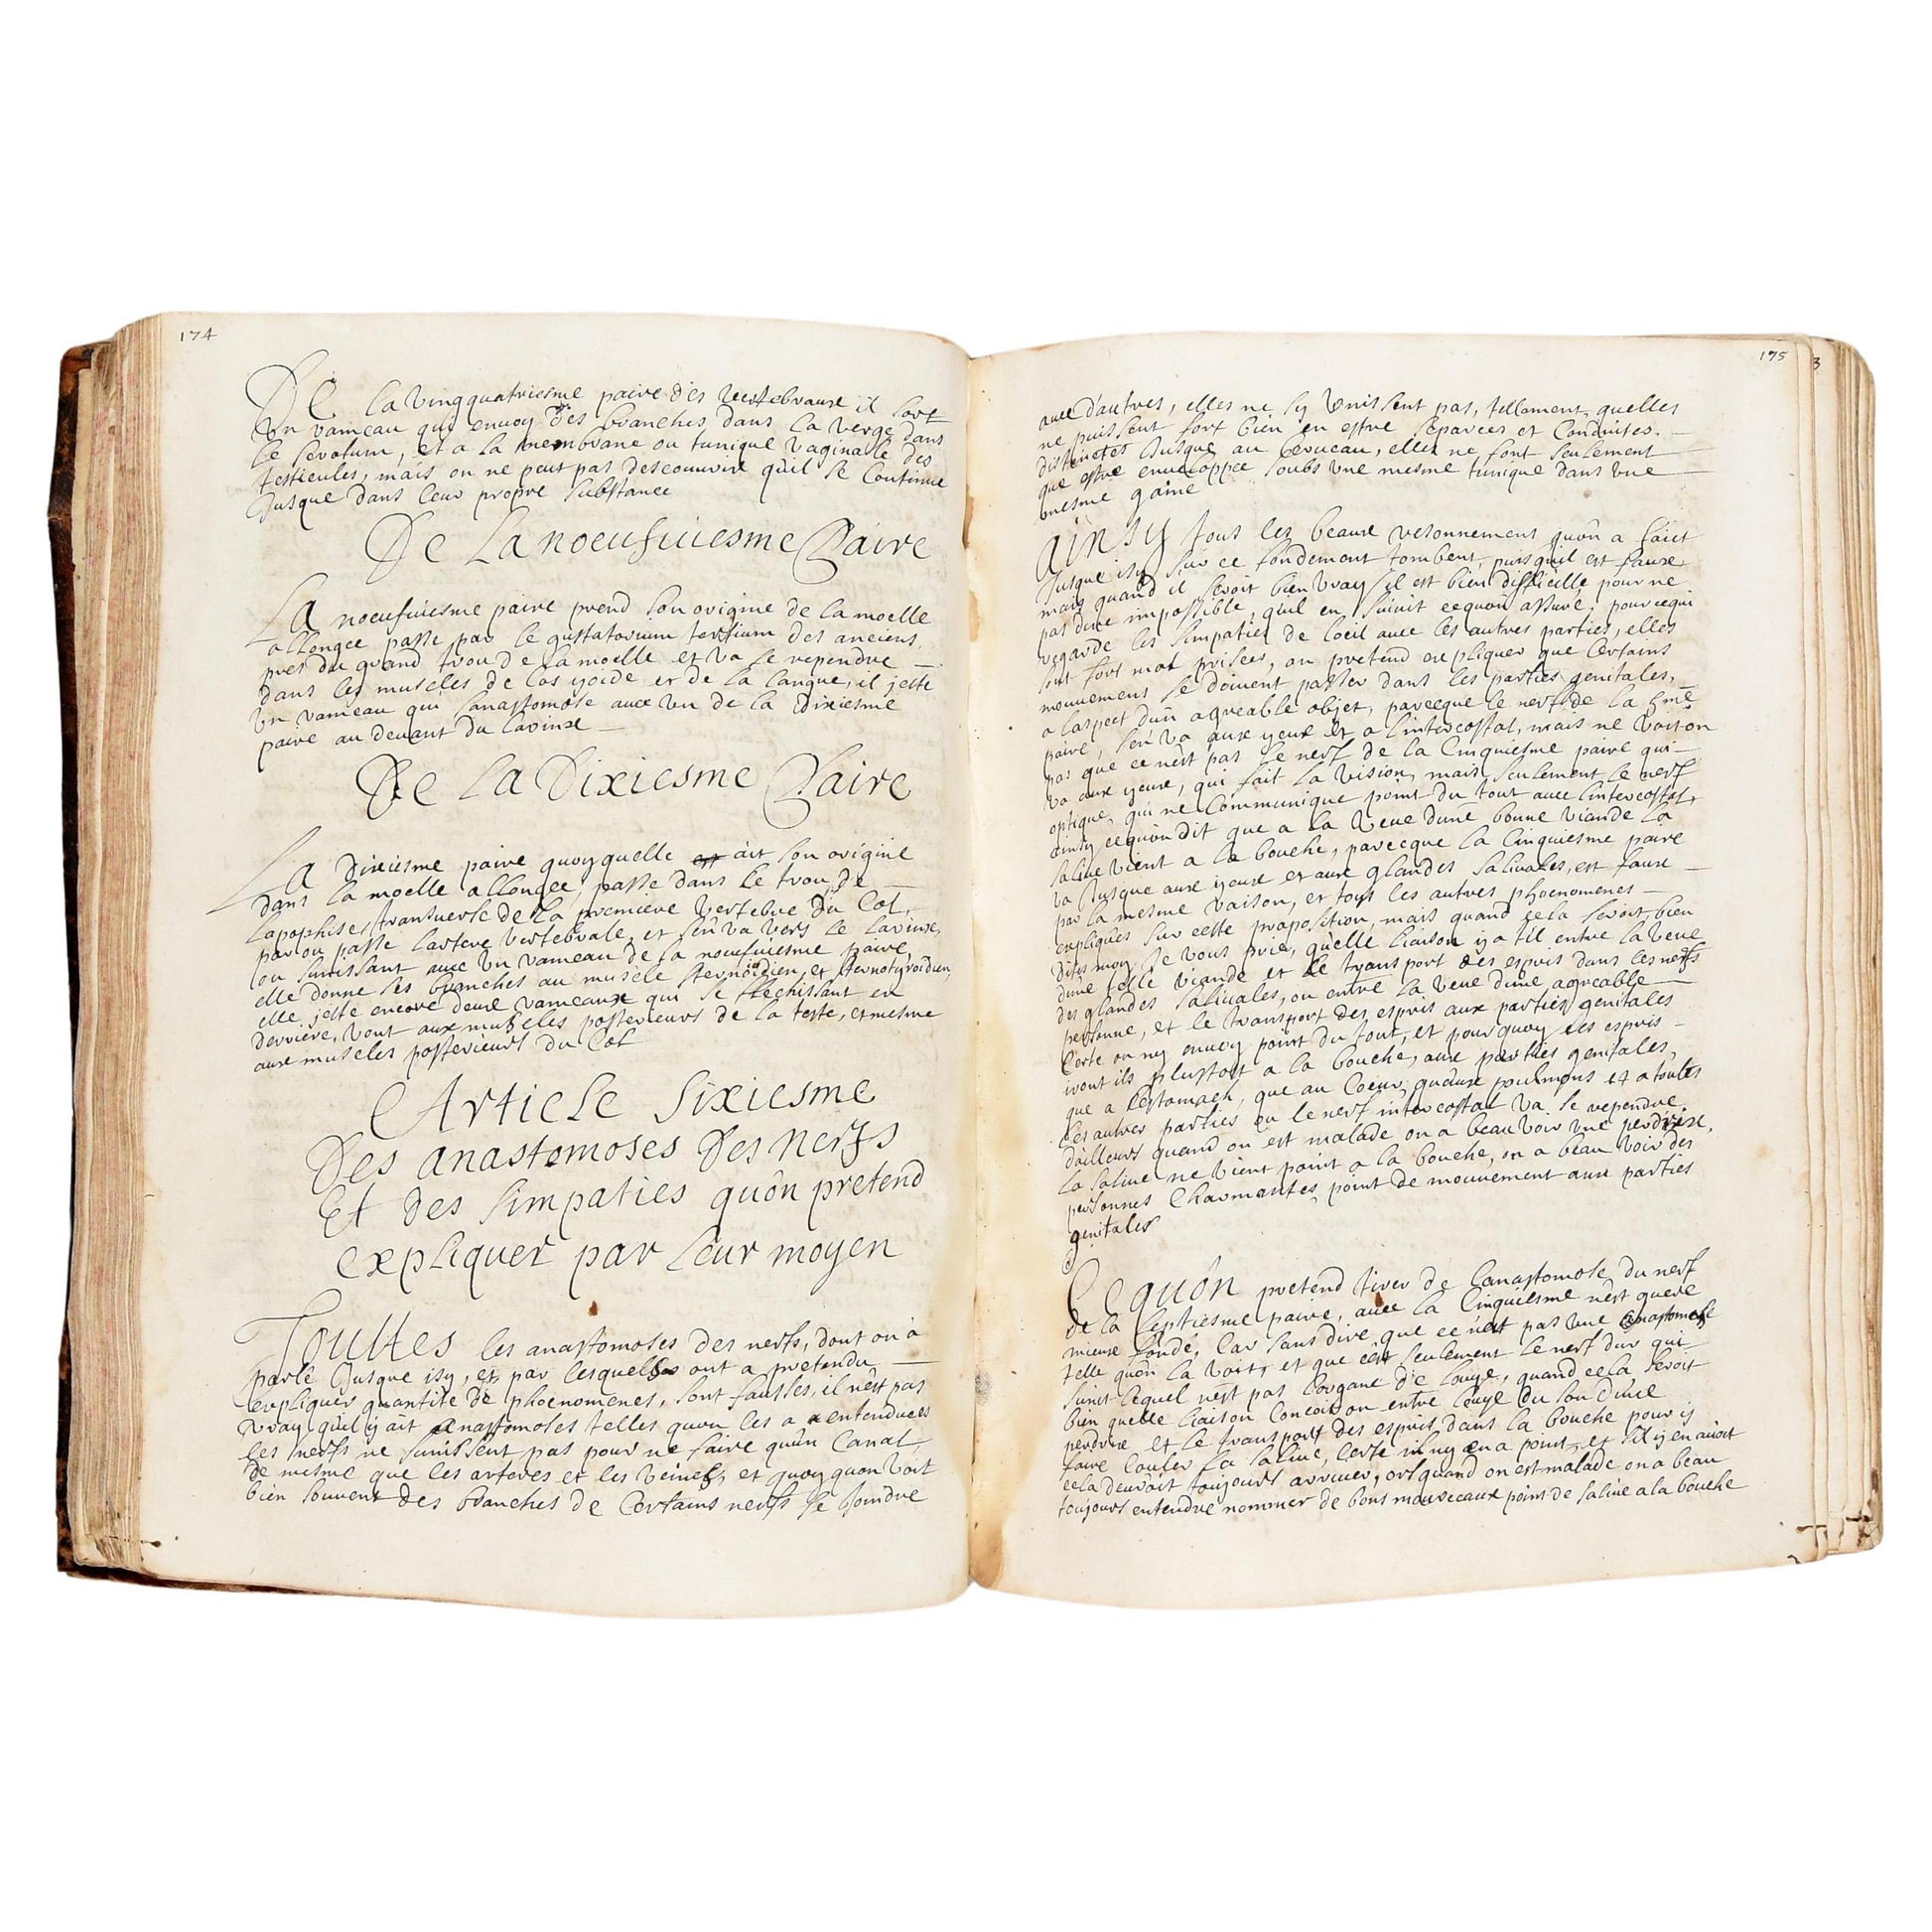 174
De la vingquatriesme paire des vertebraux il sort
Un rameau qui envoy des branches dans la verge dans
le scrotum, et a la membrane ou tunique vaginalle des
testicules, mais on ne peut pas descouvrir quil se Continue
Jusque dans leur propre substance
De La noeufuiesme Paire
La noeufuiesme paire prend son origine de la moelle
allongee passe par le gustatorium tertium des anciens,
pres du grand trou de la moelle et va se rependre —
dans les muscles de Los yoide et de la langue, il jette
Un rameau qui sanastomose auec un de la dixiesme
paire au deuant du larinx —
De La Dixiesme Paire
La dixiesme paire quoyquelle est ait son origine
dans la moelle allongee, passe dans le trou de —
Lapophise transuerse de la premiere vertebre du Col,
par ou passe lartere vertebrale, et sen va vers le larinx,
ou sunissant auec un rameau de la noeufuiesme paire,
elle donne ses branches au muscle sternoidien et sternotyroidien,
elle jette encore deux rameaux qui se flechissant en
derriere, vont aux muscles posterieurs de la teste, et mesme
aux muscles posterieurs du Col
Article Sixiesme
Des anastomoses Des Nerfs
Et des Simpaties quôn pretend
expliquer par leur moyen
Touttes les anastomoses des nerfs, dont on a
parlé Jusque isy, et par lesquelles ont a pretendu —
expliquer quantité de phoenomenes, sont fausses, il nest pas
vray quil y ait anastomoses telles quon les a entendues
les nerfs ne sunissent pas pour ne faire quun Canal,
de mesme que les arteres et les veines, et quoy quon voit
bien souvent des branches de Certains nerfs se Joindre
175
3
auec d'autres, elles ne sy Unissent pas, tellement quelles
ne puissent fort bien en estre separees et Conduites —
distinctes Jusque au Cerueau, elles ne font seulement
que estre enueloppee soubs une mesme tunique dans une
mesme gaine
Ainsy tous les beaux resonnement quôn a faict
Jusque isy sur ce fondement tombent, puisquil est faux
mais quand il seroit bien vray, il est bien difficille pour ne
pas dire impossible, quil en suiuit cequon assure, pour cequi
regarde les simpaties de loeil auec les autres parties, elles
sont fort mal prisees, on pretend expliquer que Certains
mouuemens se doiuent passer dans les parties genitales,
a laspect dun agreable objet, parceque le nerf de la 5me
paire, sen va aux yeux et a lintercostal, mais ne voit on
pas que ce nest pas le nerf de la Cinquiesme paire qui —
va aux yeux, qui fait la vision, mais seulement le nerf
optique, qui ne Communique point du tout auec lintercostal,
ainsy cequôn dit que a la veue dune bonne viande la
saliue vient a la bouche, parceque la Cinquiesme paire
va Jusque aux yeux et aux glandes saliuales, est faux —
par la mesme raison, et tous les autres phoenomenes —
expliqués sur cette proposition, mais quand cela seroit bien
dites moy Je vous prie, quelle liaison y a til entre la veue
dune telle viande et le transport des espris dans les nerfs
des glandes saliuales, ou entre la veue dune agreable —
personne, et le transport des espris aux parties genitales
Certe on ny en voy point du tout, et pour quoy les espris —
iront ils plustost a la bouche, aux parties genitales,
que a lestomach, que au Coeur, quaux poulmons et a toutes
les autres parties ou le nerf intercostal va se rependre
dailleurs quand on est malade on a beau voir une perdrix,
la saliue ne vient point a la bouche, on a beau voir des
personnes Charmantes, point de mouuement aux parties
genitales
Ce quôn pretend tirer de lanastomose du nerf
de la septiesme paire, auec la Cinquiesme nest guere
mieux fondé, Car sans dire que ce nest pas une anastomose
telle quon la voit, et que cest seulement le nerf dur qui —
sunit lequel nest pas lorgane de louye, quand cela seroit
bien quelle liaison Concoit on entre louye du son dune
perdrix et le transport des espris dans la bouche pour y
faire Couler la saliue, Certe il ny en a point, et sil y en auoit
cela deuroit toujours arriuer, or quand on est malade on a beau
toujours entendre nommer de bons mourceaux point de saliue a la bouche